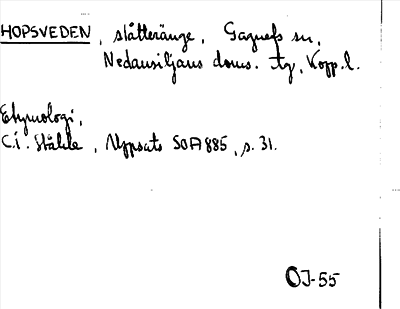 HOPSVEDEN, slåtteränge, Gagnefs sn,
Nedansiljans doms. tg, Kopp.l.
Etymologi,
C.I. Ståhle, Uppsats SOA 885, s. 31.
OJ-55